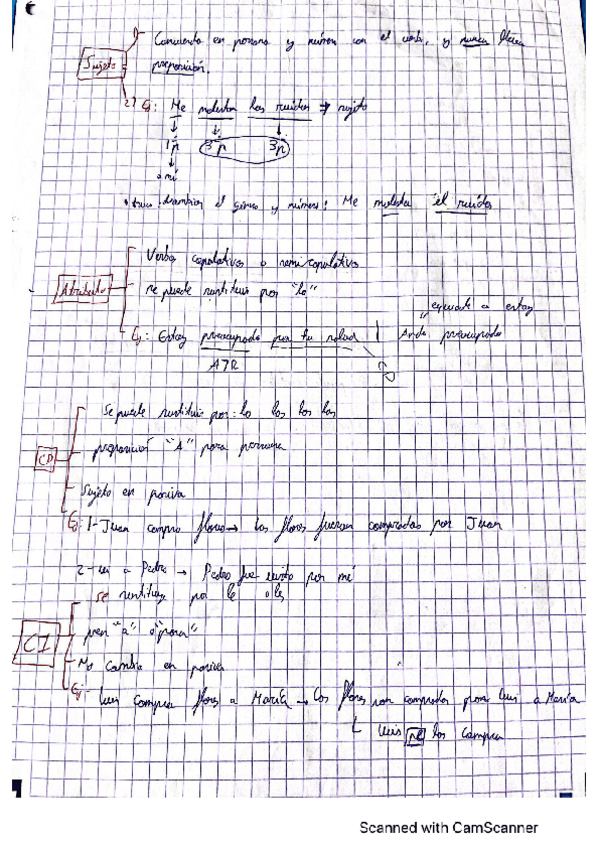 1- Concuerda en persona y número con el verbo, y nunca lleva
Sujeto
preposición.
2) Ej: Me molestan los ruidos → sujeto
1ªp 3ªp 3ªp
a mí
• truco: cambiar el género y número: Me molesta el ruido
Verbos copulativos o semicopulativos
Atributo
se puede sustituir por "lo"
"equivale a estar
Ej: Estoy preocupado por tu salud | Anda preocupado
ATR
Se puede sustituir por: lo los la las
CD
preposición "A" para persona
Sujeto en pasiva
Ej: 1- Juan compro flores → Las flores fueron compradas por Juan
2- Vi a Pedro → Pedro fue visto por mí
se sustituye por le o les
CI
prep "a" o "para"
No cambia en pasiva
Ej: Luis compra flores a María → Las flores son compradas por Luis a María
Luis se las compra
Scanned with CamScanner